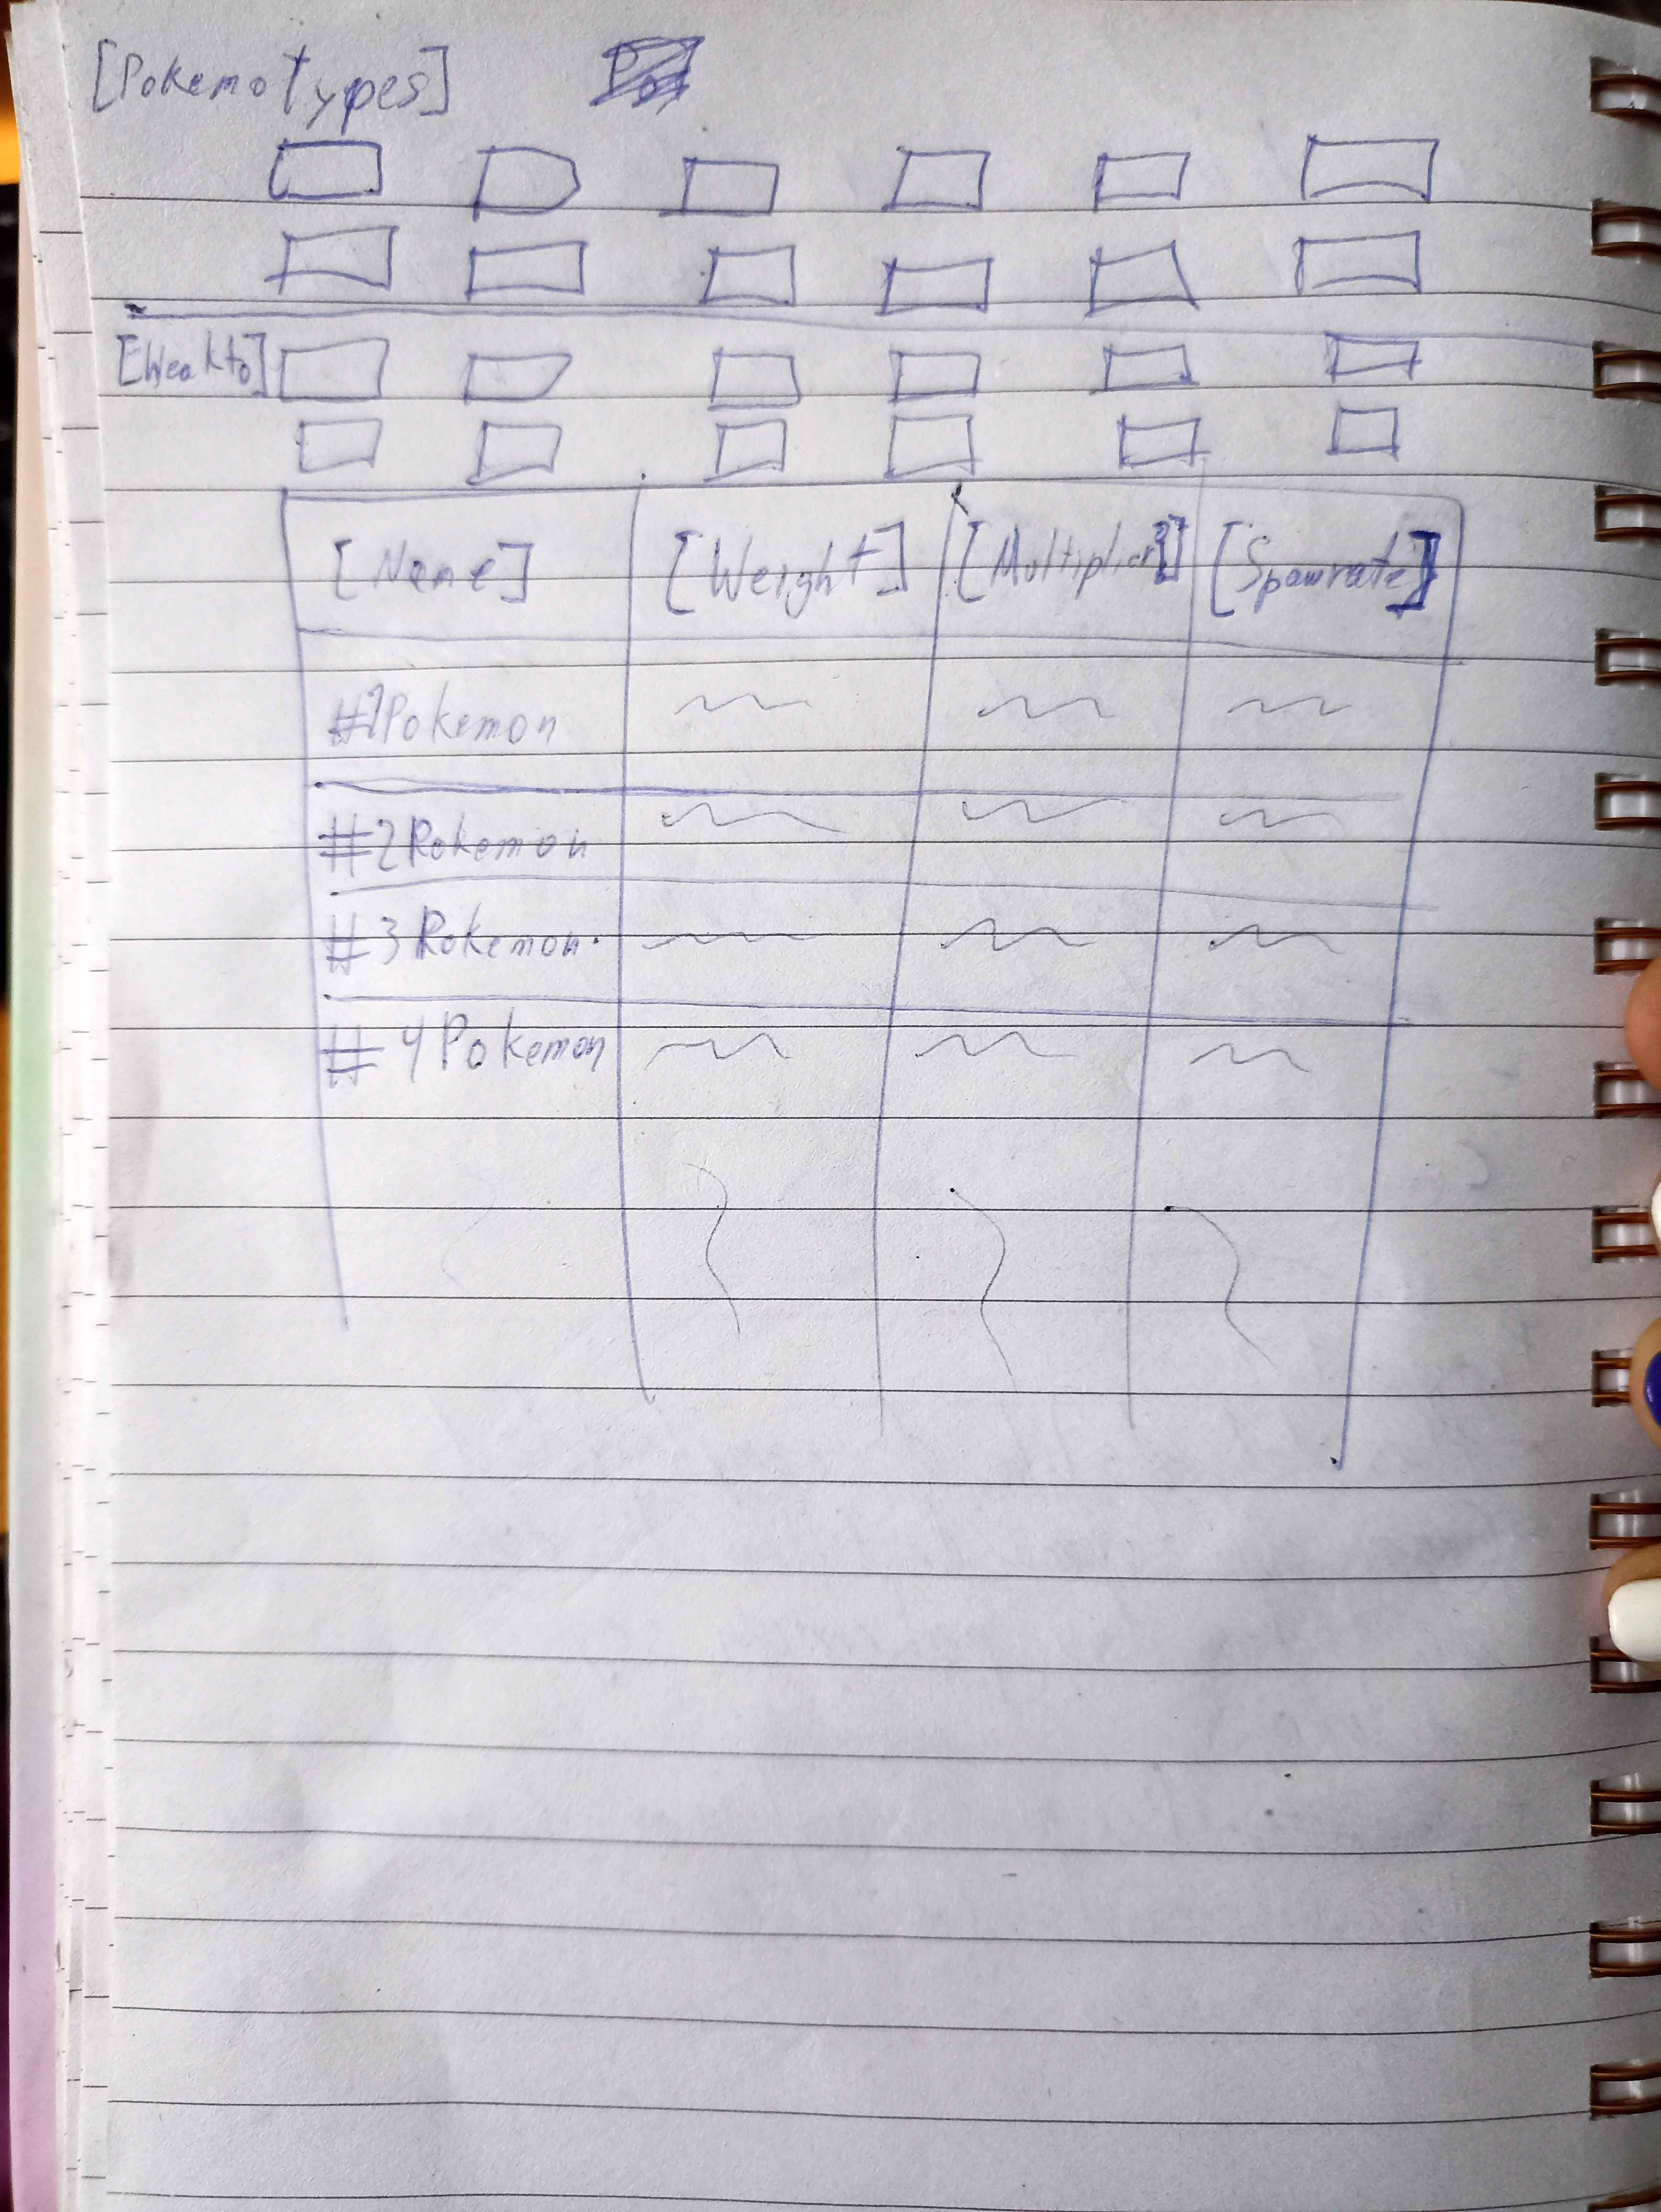 [PokemoTypes]
[Weakto]
[Name] [Weight] [Multiplier] [Spawrate]
#1Pokemon
#2Pokemon
#3Pokemon
#4Pokemon